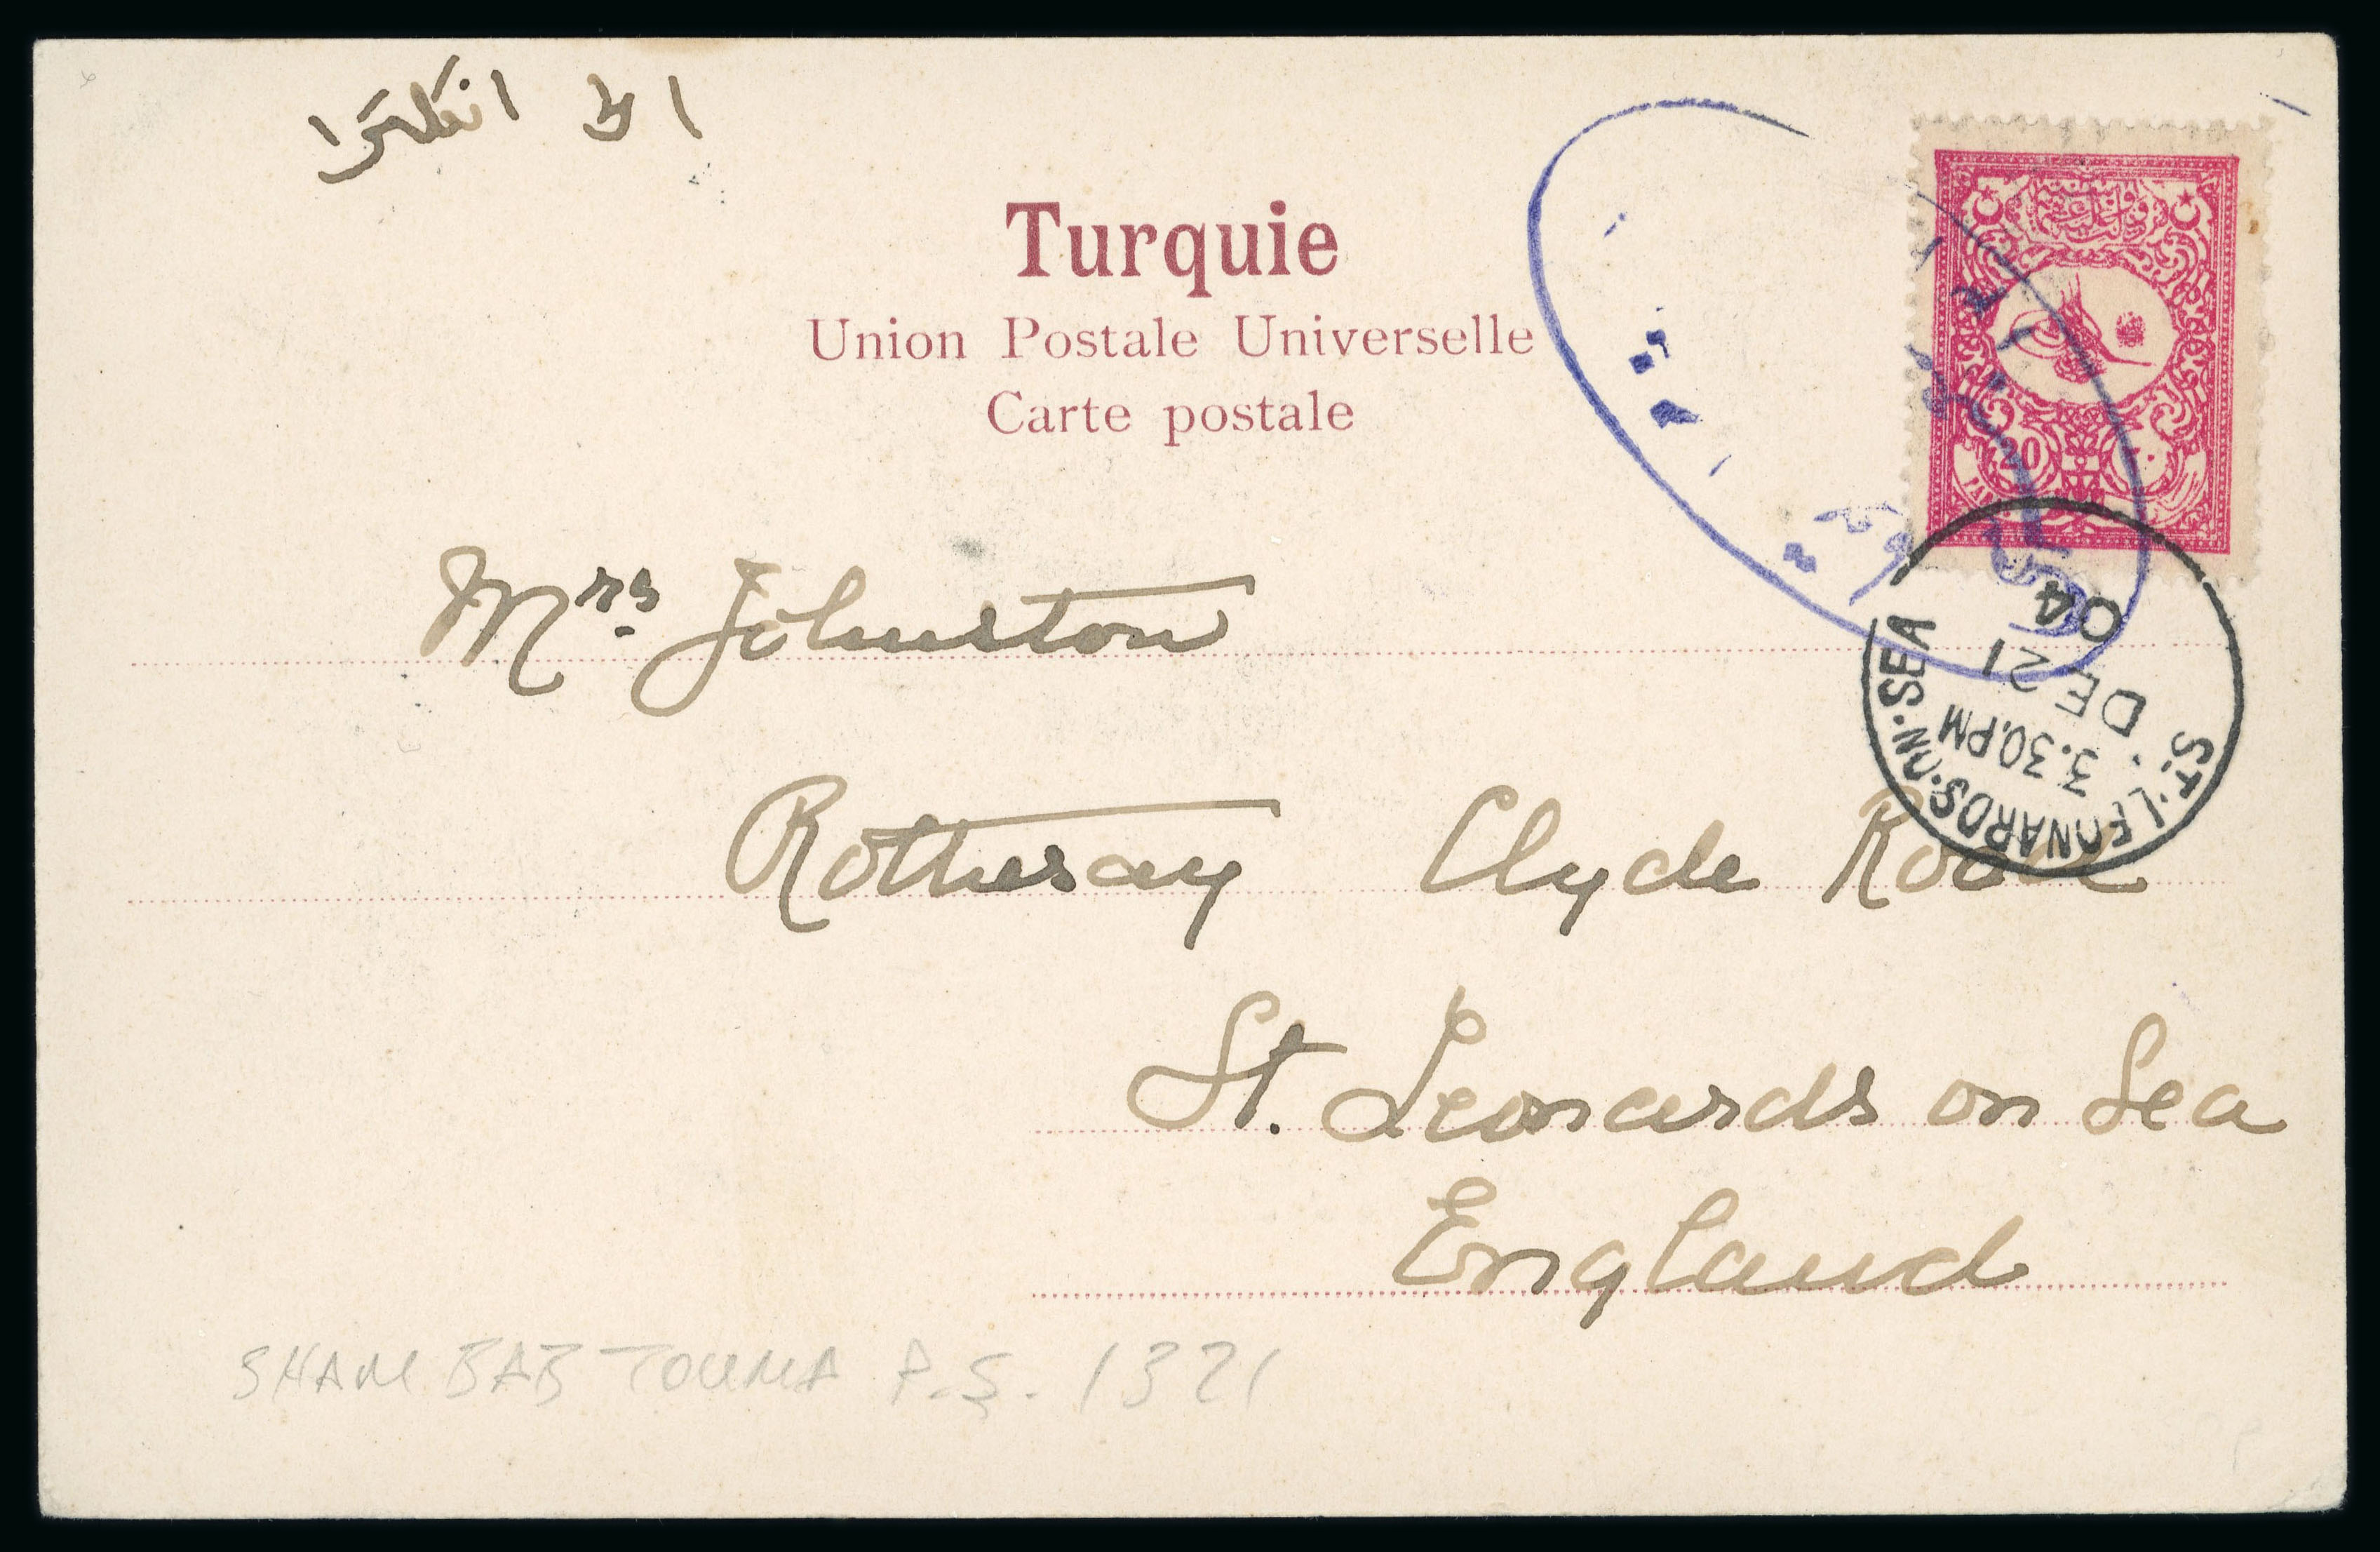 الى انكلترا
Turquie
Union Postale Universelle
Carte postale
20
Mrs. Johnston
Rothesay Clyde Road
St. Leonards on Sea
England
ST. LEONARDS·ON·SEA
3.30.PM
DE 21
04
SHAM BAB TOUMA P.S. 1321